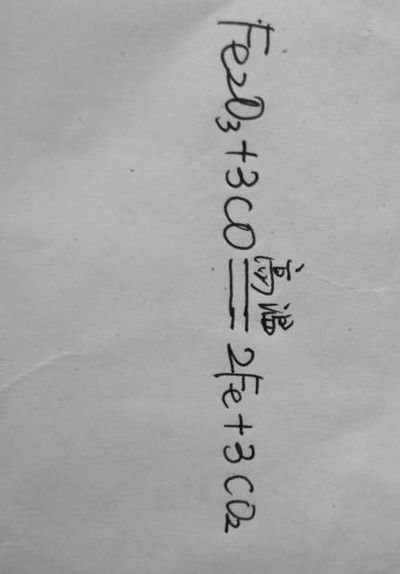 Fe₂O₃+3CO 高温 ══ 2Fe+3CO₂